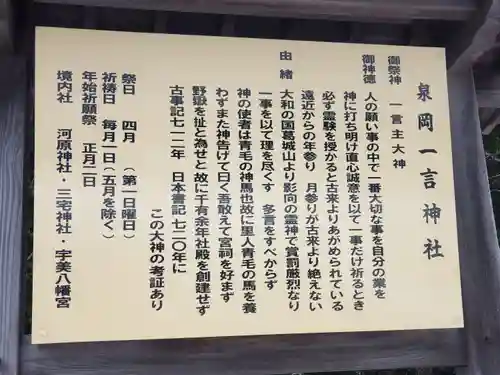 泉岡一言神社
御祭神　一言主大神
御神徳　人の願い事の中で一番大切な事を自分の業を
神に打ち明け直心誠意を以て一事だけ祈るとき
必ず霊験を授かると古来よりあがめられている
遠近からの年参り　月参りが古来より絶えない
由緒　大和の国葛城山より影向の霊神で賞罰厳烈なり
一事を以て理を尽くす　多言をすべからず
神の使者は青毛の神馬也故に里人青毛の馬を養
わずまた神告げて曰く吾敢えて宮祠を好まず
野嶽を扯と為せと故に千有余年社殿を創建せず
古事記七一二年　日本書記七二〇年に
この大神の考証あり
祭日　四月　（第一日曜日）
祈祷日　毎月一日（五月を除く）
年始祈願祭　正月二日
境内社　河原神社・三宅神社・宇美八幡宮